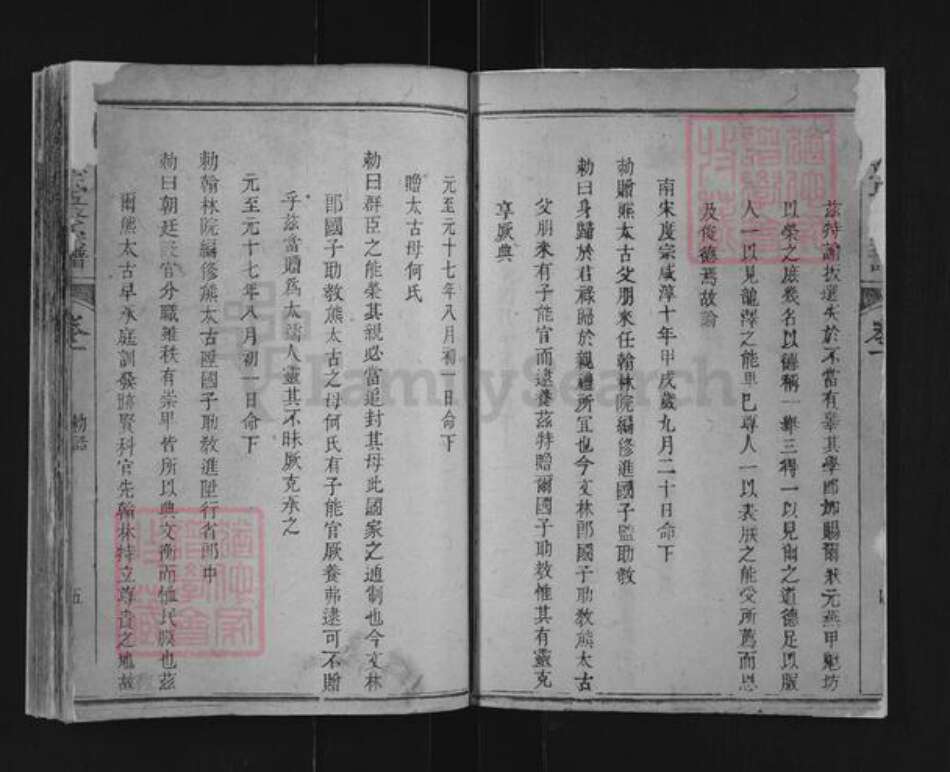 茲特諭拔選失於不當有辜其學即加賜爾狀元燕甲魁坊
以榮之庶幾名以德稱一舉三得一以見爾之道德足以服
人一以見龍澤之能卑巳尊人一以表朕之能受所薦而恩
及俊德焉故諭
南宋度宗咸淳十年甲戌歲九月二十日命下
勅贈熊太古父朋來任翰林院編修進國子監助教
勅曰身歸於君祿歸於親禮所宜也今文林郎國子助教熊太古
父朋來有子能官而逮養茲特贈爾國子助教惟其有靈克
享厥典
元至元十七年八月初一日命下
贈太古母何氏
勅曰群臣之能榮其親必當追封其母此國家之通制也今文林
郎國子助教熊太古之母何氏有子能官厥養弗逮可不贈
乎茲當贈爲太孺人靈其不昧厥克承之
元至元十七年八月初一日命下
勅翰林院編修熊太古陞國子助教進陞行省郎中
勅曰朝廷設官分職雖秩有崇卑皆所以典文衡而恤民瘼也茲
爾熊太古早承庭訓發跡賢科官先翰林特立尊貴之地故
譜
卷一
勅誥
五
FamilySearch